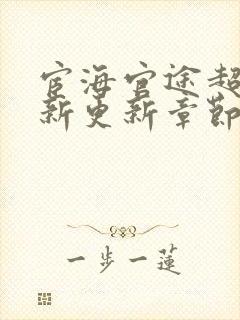 宦海官途超
新更新章节
一步一莲